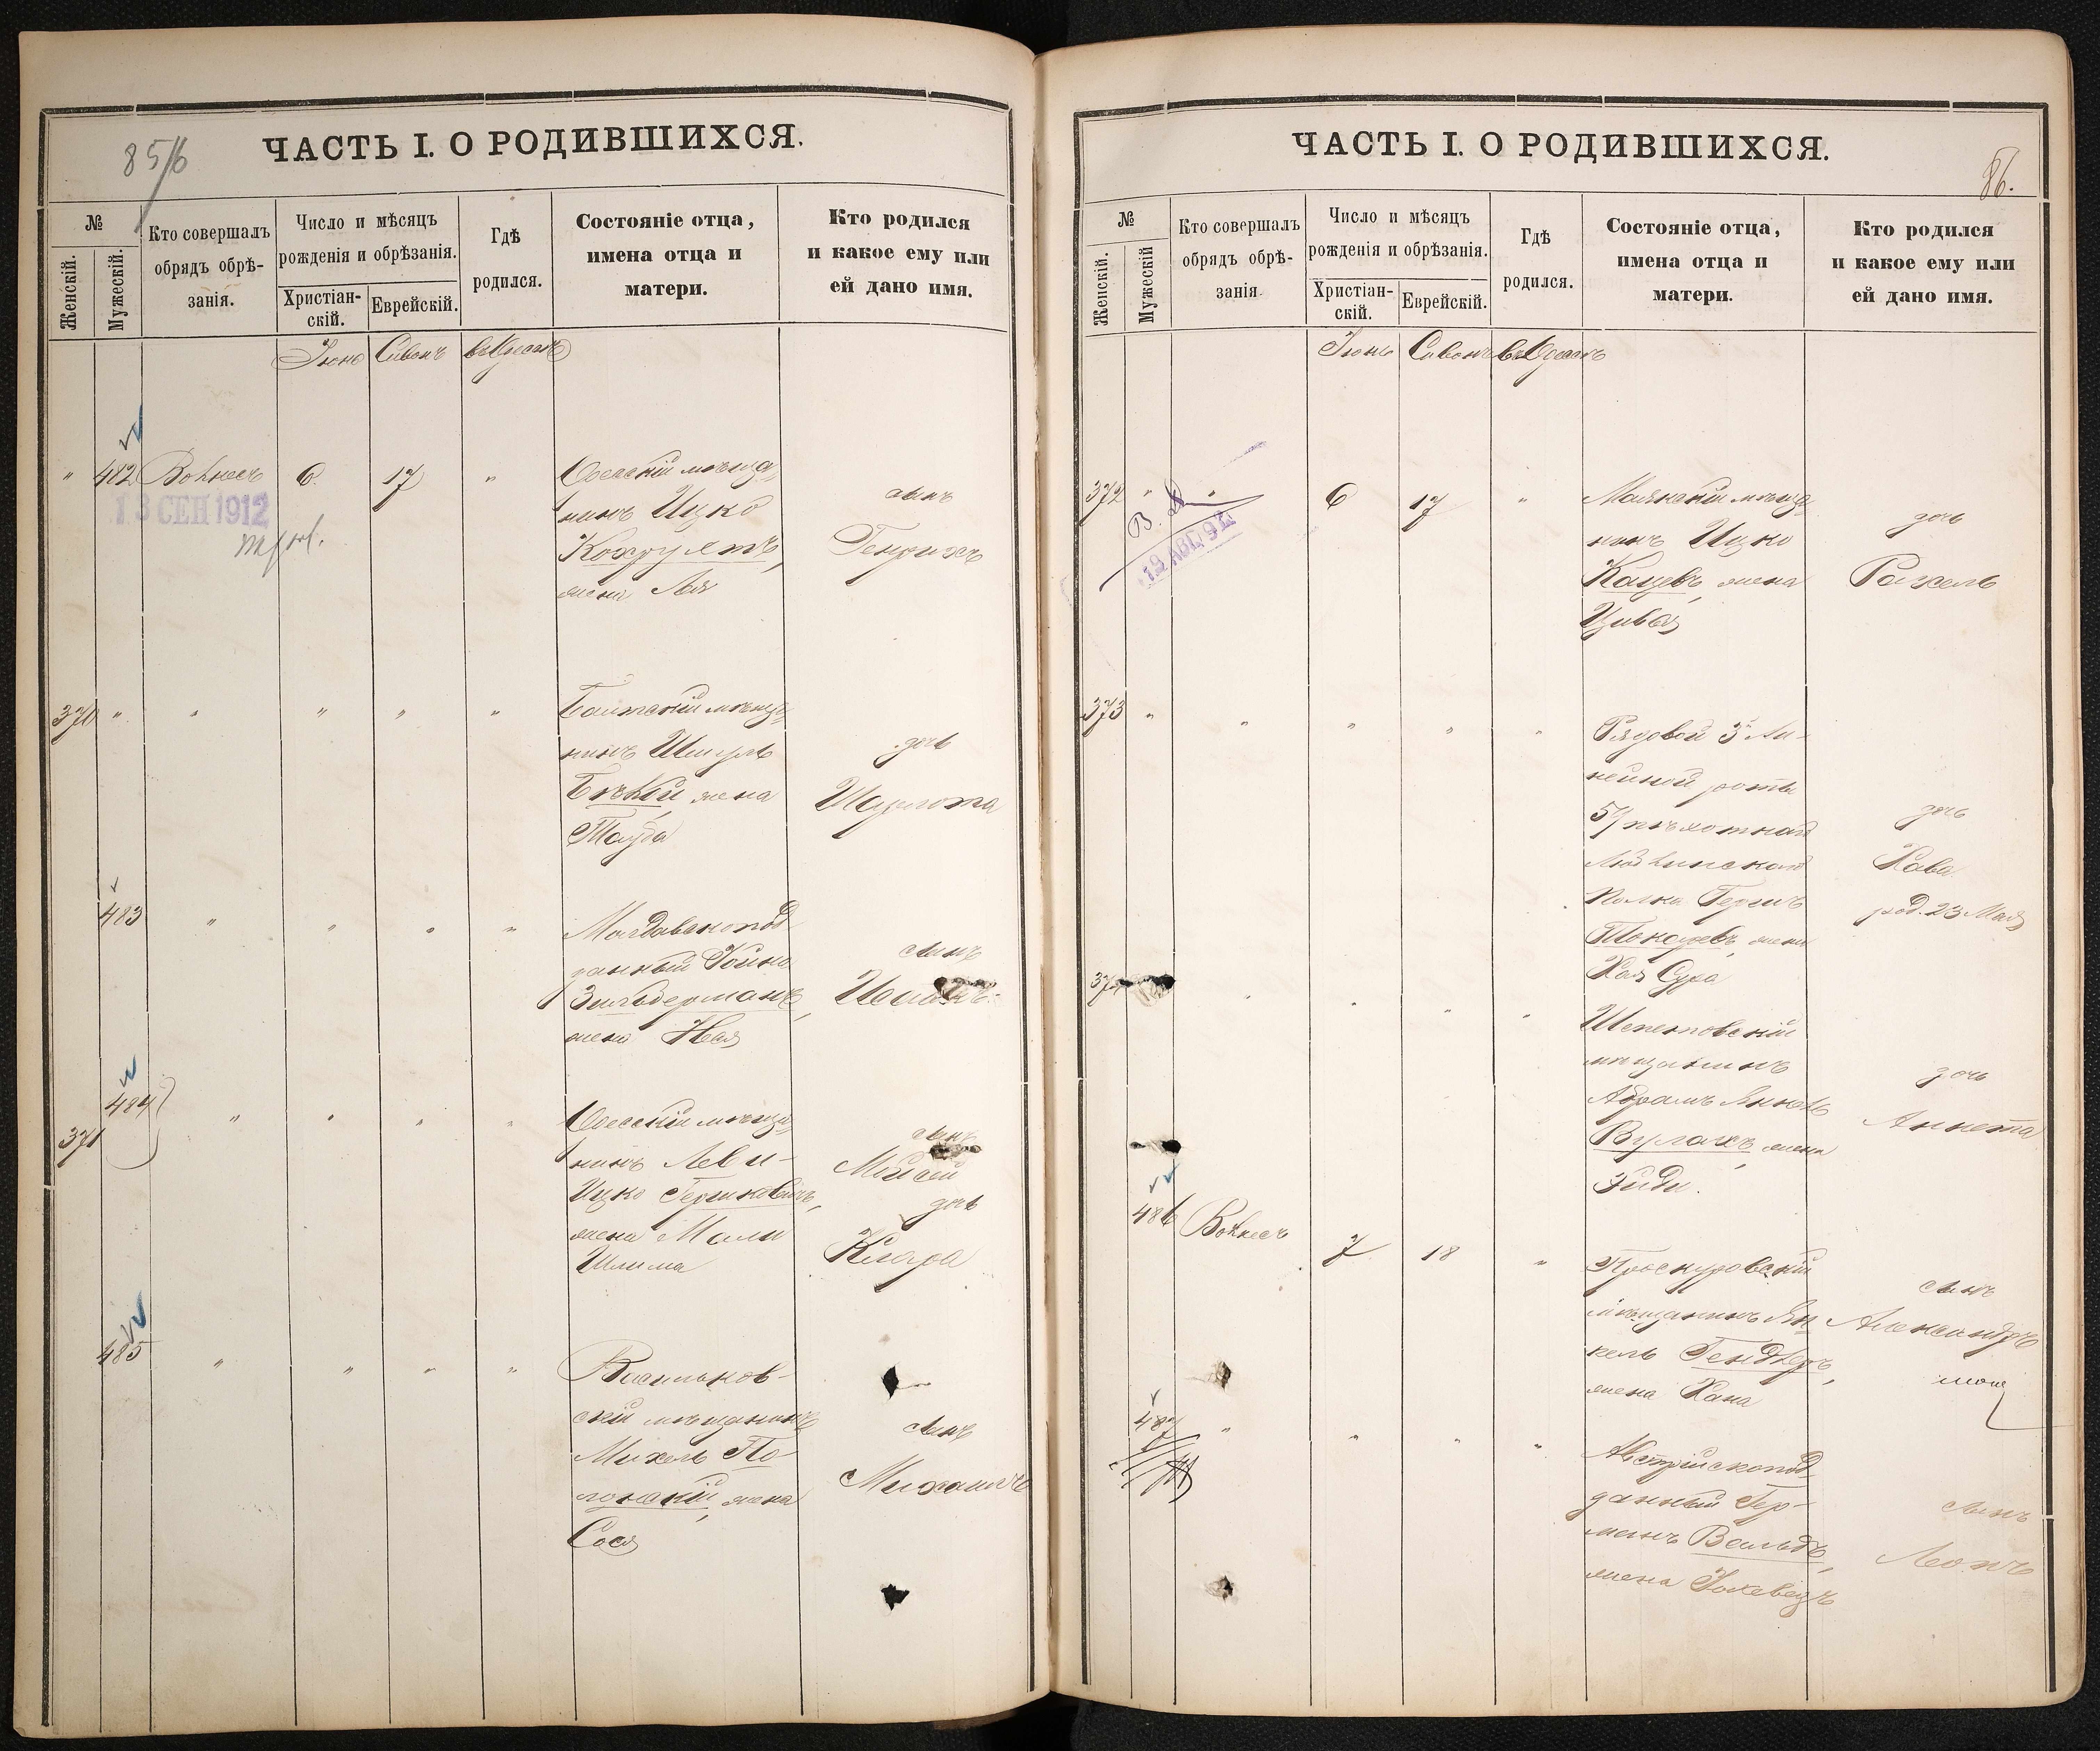 85/6
ЧАСТЬ I. О РОДИВШИХСЯ.
№
Женскій.
Мужескій.
Кто совершалъ
обрядъ обрѣ-
занія.
Число и мѣсяцъ
рожденія и обрѣзанія.
Христіан-
скій.
Еврейскій.
Гдѣ
родился.
Состояніе отца,
имена отца и
матери.
Кто родился
и какое ему или
ей дано имя.
Іюнь Сиванъ въ Одессѣ
" 482 6 17 "
13 СЕН 1912
Одесскій мѣща-
нинъ Ицко
жена Лея
сынъ
Генрихъ
370 " " " " "
Балтскій мѣща-
нинъ Шмуль
жена
Тауба
дочь
Шарлота
483 " " " "
Молдаваноподд-
данный Хойна
Зильберманъ,
жена Ноя
сынъ
484
371 " " " "
Одесскій мѣща-
нинъ Леви-
Ицко Гершковичъ,
жена Мали
Шлима
сынъ
Мойсей
дочь
Клара
485 " " " "
Васильков-
скій мѣщанинъ
Михель По-
лонскій, жена
Сося
сынъ
Михаилъ
86.
ЧАСТЬ I. О РОДИВШИХСЯ.
№
Женскій.
Мужескій
Кто совершалъ
обрядъ обрѣ-
занія
Число и мѣсяцъ
рожденія и обрѣзанія.
Христіан-
скій.
Еврейскій.
Гдѣ
родился.
Состояніе отца,
имена отца и
матери.
Кто родился
и какое ему или
ей дано имя.
Іюнь Сиванъ въ Одессѣ
372 " " 6 17 "
19 АВГ. 9
Маякскій мѣща-
нинъ Ицко
Кацевъ, жена
Цивья
дочь
Рахель
373 " " " " "
Рядовой 3й Ли-
нейной роты
57 пѣхотнаго
Модлинскаго
Полка Гершъ
жена
Хая Сура
дочь
Хава
род. 23 Мая
Шепетовскій
мѣщанинъ
Абрамъ Янкель
Вулахъ, жена
Хиди.
дочь
Аннета
486 7 18 "
Проскуровскій
мѣщанинъ Ян-
кель Гендлеръ,
жена Хана
сынъ
Александръ
487 " " " "
Австрійскоподд-
данный Гер-
манъ Вельдъ,
жена Іохеведъ
сынъ
Леонъ